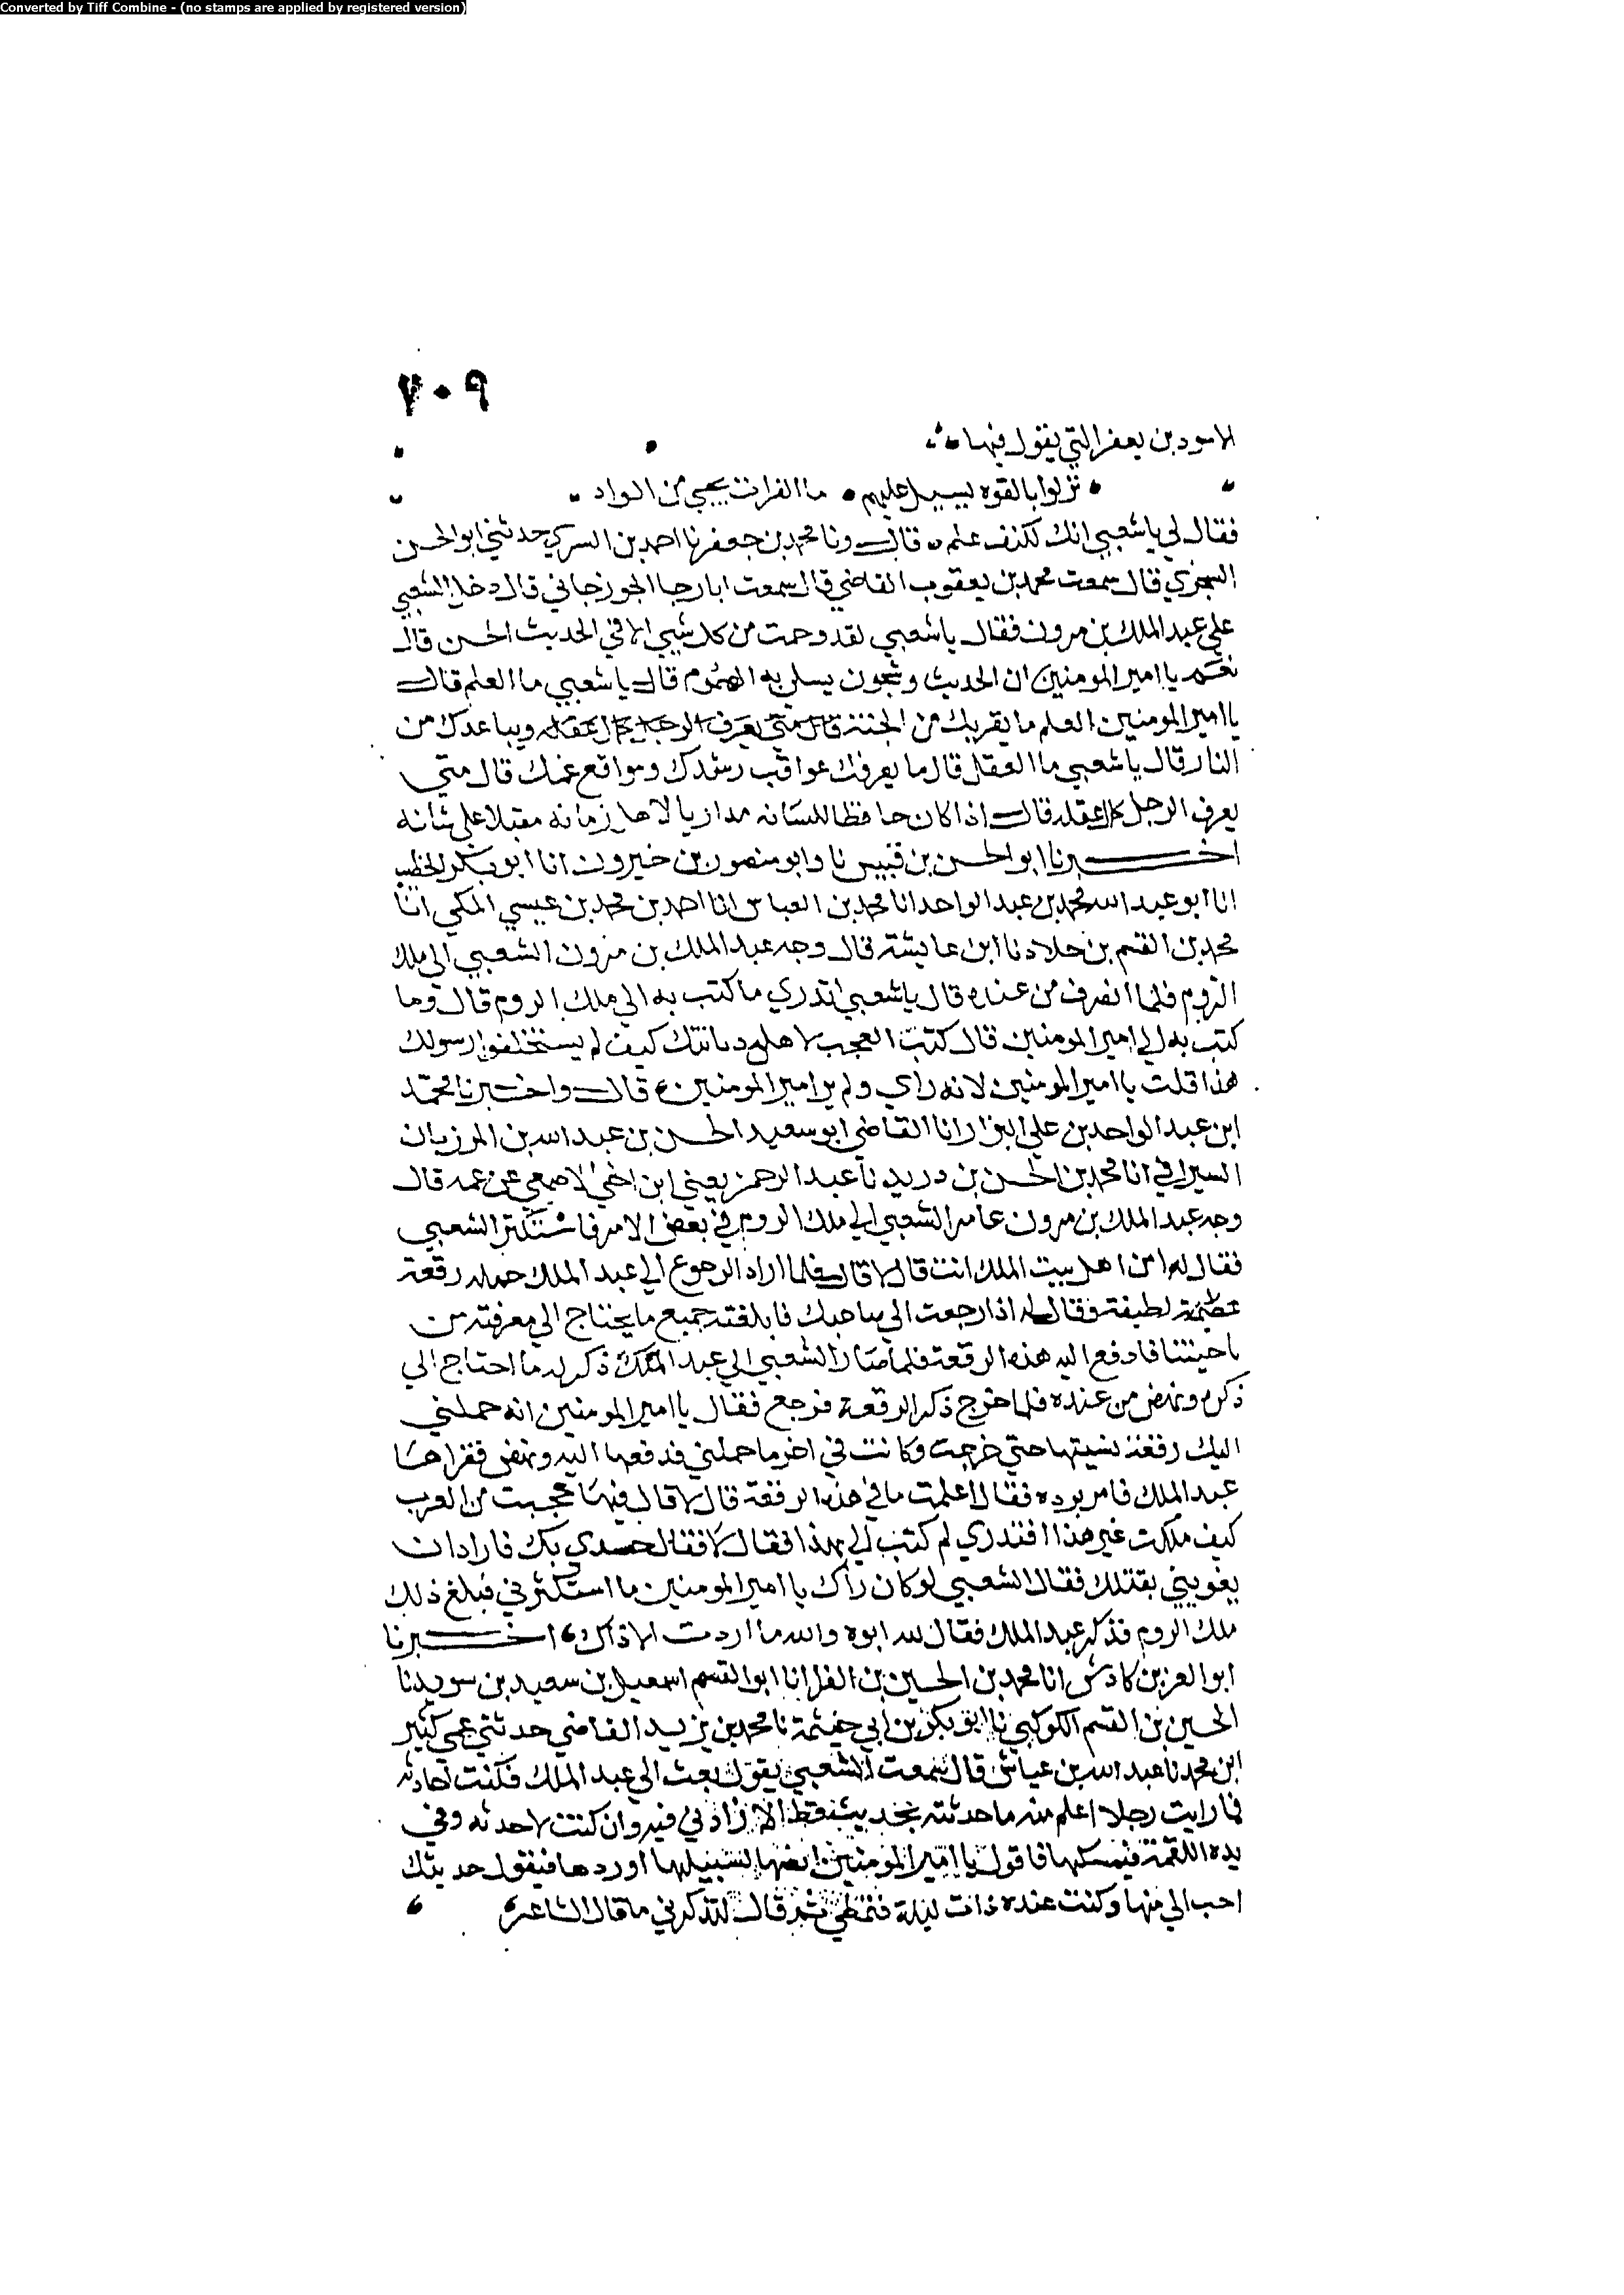 Converted by Tiff Combine - (no stamps are applied by registered version)
٧٠٩
لاسود بن يعفر التي يقول فيها
نزلوا بانقره يسيل عليهم ما الفرات يجي من الواد
فقال لي يا شعبي انك لكنف علم قال ونا محمد بن جعفر نا احمد بن السري حدثني ابو الحسن
السجزي قال سمعت محمد بن يعقوب القاضي قال سمعت ابا رجا الجوزجاني قال دخل الشعبي
على عبد الملك بن مرون فقال يا شعبي لقد وحمت من كل شي الا في الحديث الحسن قال
نعم يا امير المومنين ان الحديث ذو شجون يسلى به الهموم قال يا شعبي ما العلم قال
يا امير المومنين العلم ما يقربك من الجنة ويباعدك من
النار قال يا شعبي ما العقل قال ما يعرفك عواقب رشدك ومواقع غيك قال متى
يعرف الرجل كمال عقله قال اذا كان حافظا للسانه مداريا لاهل زمانه مقبلا على شانه
اخبرنا ابو الحسن بن قبيس نا وابو منصور بن خيرون انا ابو بكر الخطيب
انا ابو عبد الله محمد بن عبد الواحد انا محمد بن العباس انا احمد بن محمد بن عيسي المكي انا
محمد بن القسم بن خلاد نا ابن عايشة قال وجه عبد الملك بن مرون الشعبي الى ملك
الروم فلما انصرف من عنده قال يا شعبي اتدري ما كتب به الي ملك الروم قال وما
كتب به الي امير المومنين قال كتب العجب لاهل ديانتك كيف لم يستخلفوا رسولك
هذا قلت يا امير المومنين لانه راي ولم ير امير المومنين قال واخبرنا محمد
ابن عبد الواحد بن علي البزار انا القاضي ابو سعيد الحسن بن عبد الله بن المرزبان
السيرافي انا محمد بن الحسن بن دريد نا عبد الرحمن يعني ابن اخي الاصمعي عن عمه قال
وجه عبد الملك بن مرون عامر الشعبي الى ملك الروم في بعض الامر فاستكثر الشعبي
فقال له امن اهل بيت الملك انت قال لا قال فلما اراد الرجوع الي عبد الملك حمله رقعة
لطيفة وقال له اذا رجعت الى صاحبك فابلغته جميع ما يحتاج الي معرفته من
ناحيتنا فادفع اليه هذه الرقعة فلما صار الشعبي الي عبد الملك ذكر له ما احتاج الي
ذكره ونهض من عنده فلما خرج ذكر الرقعة فرجع فقال يا امير المومنين انه حملني
اليك رقعة نسيتها حتي خرجت وكانت في اخر ما حملني فدفعها اليه ونهض فقراها
عبد الملك فامر برده فقال اعلمت ما في هذه الرقعة قال لا قال فيها عجبت من العرب
كيف ملكت غير هذا افتدري لم كتب الي بهذا فقال لا فقال حسدني بك فاراد ان
يغريني بقتلك فقال الشعبي لو كان راك يا امير المومنين ما استكثرني فبلغ ذلك
ملك الروم فذكر عبد الملك فقال لله ابوه والله ما اردت الا ذاك اخبرنا
ابو العز بن كادش انا محمد بن الحسين بن الفرا انا ابو القسم اسمعيل بن سعيد بن سويد نا
الحسين بن القسم الكوكبي نا ابو بكر بن ابي خيثمة نا محمد بن يزيد القاضي حدثني عمي كثير
ابن محمد نا عبد الله بن عياش قال سمعت الشعبي يقول بعث الي عبد الملك فكنت احادثه
فما رايت رجلا اعلم منه ما حدثته بحديث قط الا زادني فيه وان كنت لاحدثه وفي
يده اللقمة فيمسكها فاقول يا امير المومنين اضها لسبيلها او ردها فيقول حديثك
احب الي منها وكنت عنده ذات ليلة فتمطي ثم قال لتذكرني ما قال الشاعر